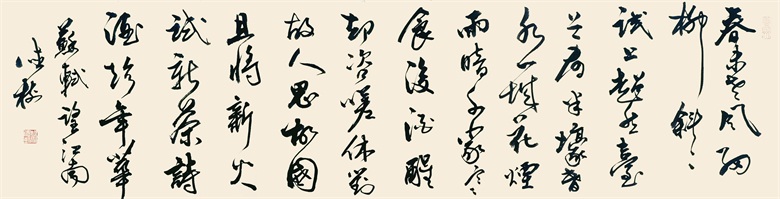 春未老風細
柳斜〻
試上超然臺
上看半壕春
水一城花煙
雨暗千家寒
食後酒醒
却咨嗟休對
故人思故國
且將新火
試新茶詩
酒趁年華
蘇軾望江南